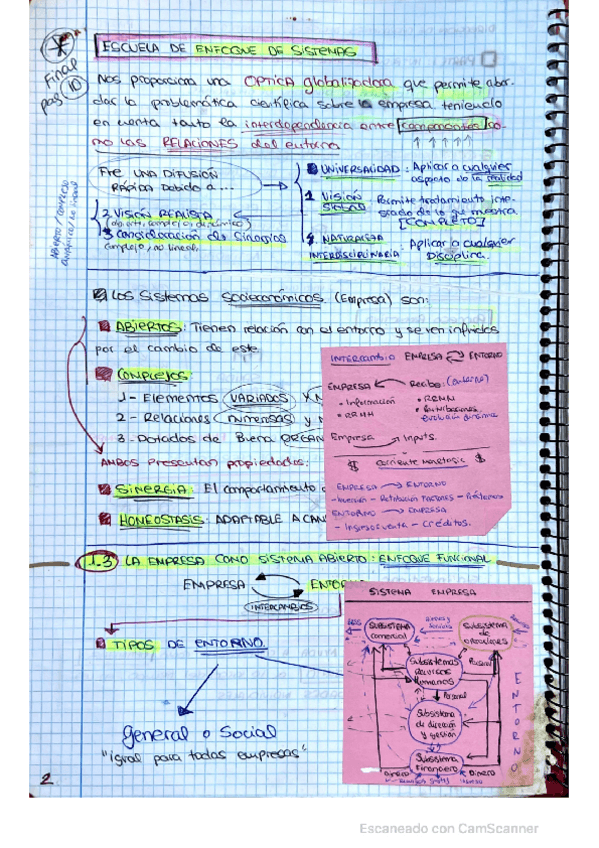 Final
pag 10
ESCUELA DE ENFOQUE DE SISTEMAS
Nos proporciona una OPTICA globalizadora que permite abor-
dar la problemática científica sobre la empresa teniendo
en cuenta tanto la interdependencia entre componentes co-
mo las RELACIONES del entorno.
FUE UNA DIFUSIÓN
RÁPIDA DEBIDO A ...
UNIVERSALIDAD: Aplicar a cualquier
aspecto de la realidad
1. VISIÓN
Permite tratamiento inte-
grado de lo que muestra.
[COMPLETO]
2 VISIÓN REALISTA
3 Consideración de Sinergias
complejo, no lineal.
4. NATURALEZA
INTERDISCIPLINARIA: Aplicar a cualquier
Disciplina.
Los Sistemas Socioeconómicos (Empresa) son:
ABIERTOS: Tienen relación con el entorno y se ven influidos
por el cambio de este.
COMPLEJOS
1- Elementos VARIADOS y
2- Relaciones INTENSAS y
3- Dotados de Buena ORGAN
AMBOS Presentan propiedades:
SINERGIA: El comportamiento
HOMEOSTASIS: ADAPTABLE A CAM
INTERCAMBIO EMPRESA ENTORNO
EMPRESA Recibe: (entorno)
- Información
- RRHH
• RRNN
• Retribuciones
evolución dinámica
Empresa Inputs.
$ corriente monetaria $
EMPRESA ENTORNO
- Inversión - Retribución Factores - Préstamos
ENTORNO EMPRESA
- Ingresos venta - Créditos.
1.3 LA EMPRESA COMO SISTEMA ABIERTO: ENFOQUE FUNCIONAL
EMPRESA ENTOR
INTERCAMBIOS
TIPOS DE ENTORNO
General o Social
"igual para todas empresas"
SISTEMA EMPRESA
SUBSISTEMA
comercial
Bienes y
Servicios
Subsistema
de
operaciones
Subsistemas
Recursos
Humanos
Personal
Personal
Subsistema
de dirección
y gestión
Subsistema
Financiero
Dinero
Dinero
ENTORNO
2
Escaneado con CamScanner